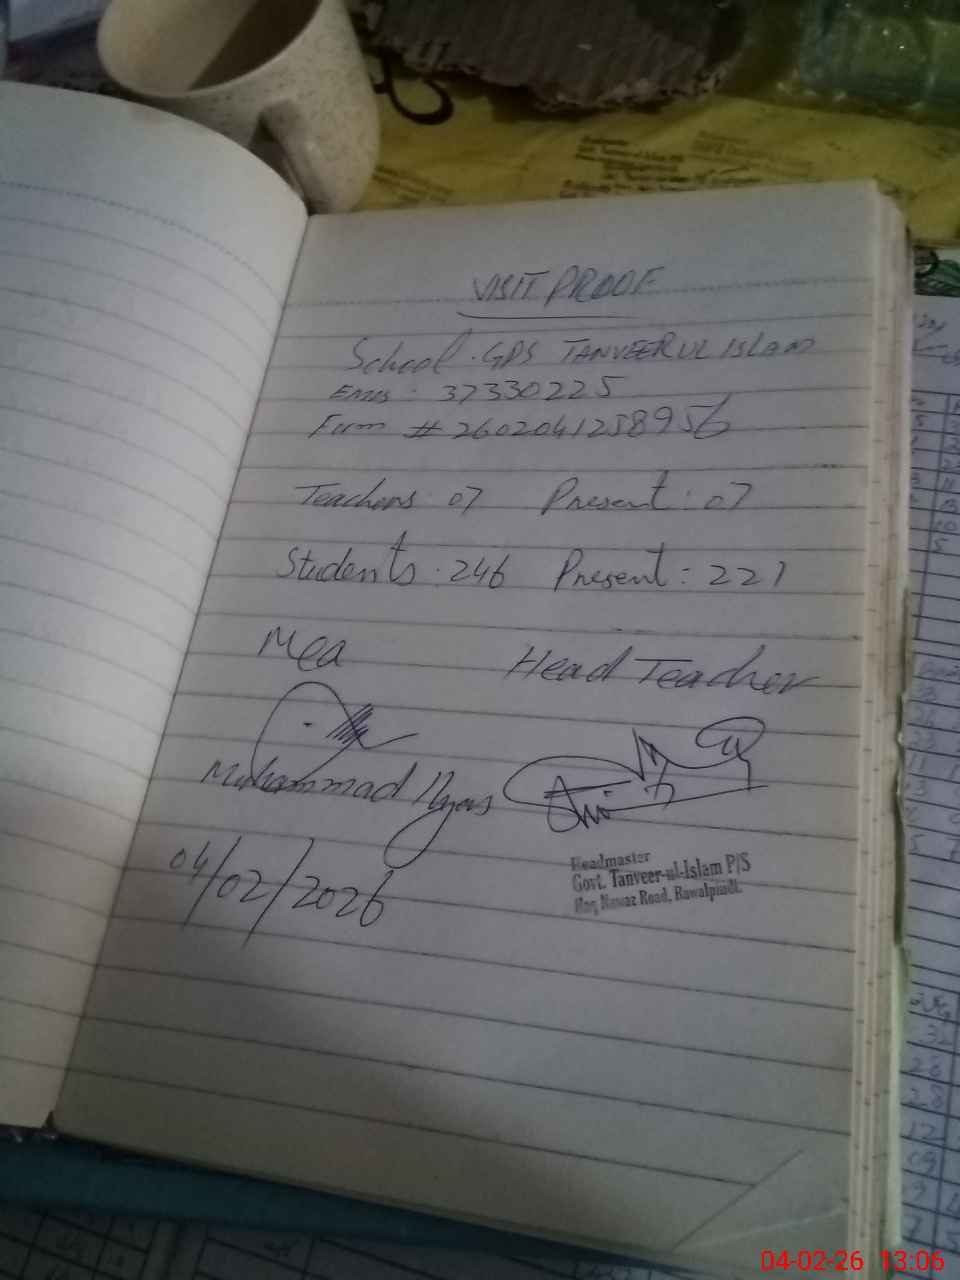 VISIT PROOF
School. GPS TANVEER UL ISLAM
Emis. 37330225
Form # 2602041258956
Teachers 07 Present: 07
Students. 246 Present: 221
Mea Head Teacher
Muhammad Ilyas
04/02/2026
Headmaster
Govt. Tanveer-ul-Islam P/S
Haq Nawaz Road, Rawalpindi.
04-02-26 13:06